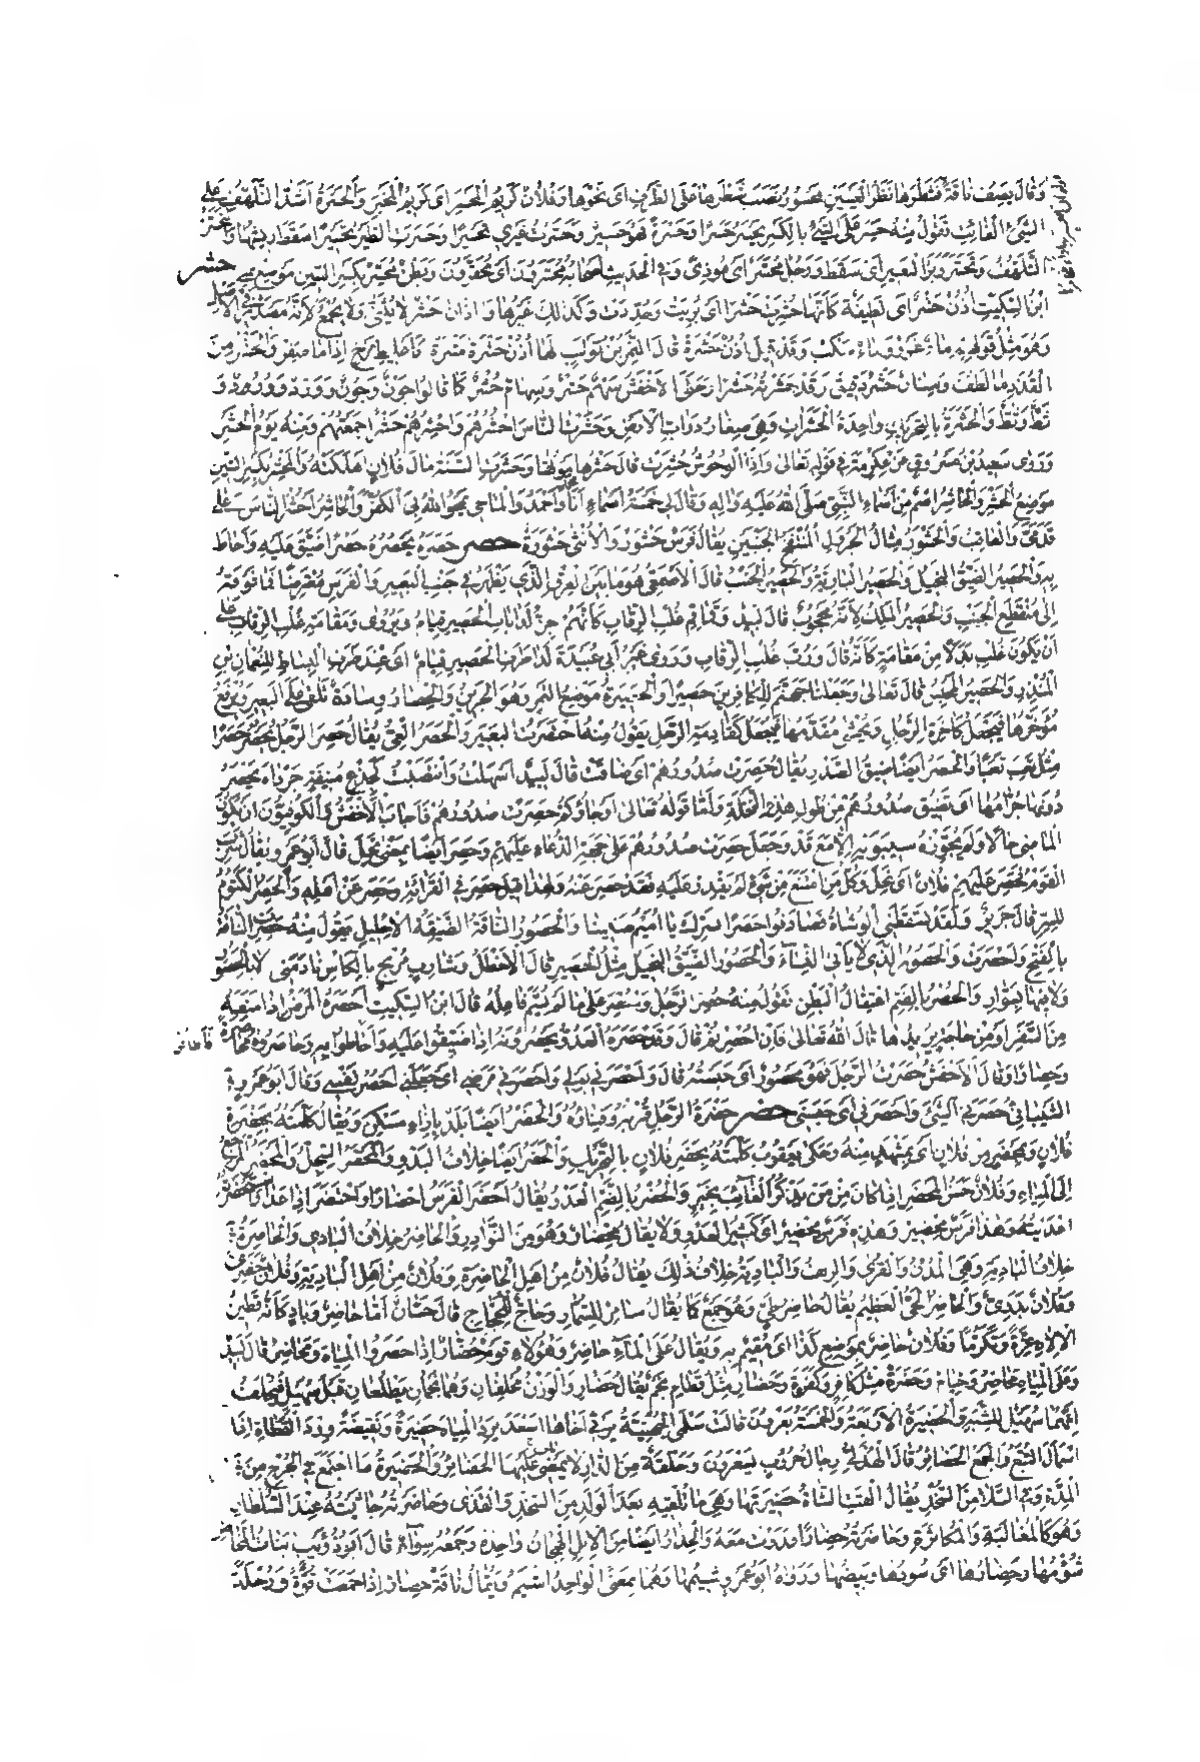 وَقَالَ يَصِفُ نَاقَةً فَشَطْرَهَا نَظَرُ الْعَيْنَيْنِ مَحْسُورُ نَصَبَ شَطْرَهَا عَلَى الظَّرْفِ اَىْ نَحْوَهَا وَفُلَانٌ كَرِيمُ الْمَحْسَرِ اَىْ كَرِيمُ الْمَخْبَرِ وَالْحَسْرَةُ اَشَدُّ التَّلَهُّفِ عَلَى
الشَّىْءِ الْفَائِتِ تَقُولُ مِنْهُ حَسِرَ عَلَى الشَّىْءِ بِالْكَسْرِ يَحْسَرُ حَسَرًا وَحَسْرَةً فَهُوَ حَسِيرٌ وَحَسَّرْتُ غَيْرِى تَحْسِيرًا وَحَسَّرَتِ الطَّيْرُ تَحْسِيرًا سَقَطَ رِيشُهَا وَالتَّحَسُّرُ
التَّلَهُّفُ وَتَحَسَّرَ وَبَرُ الْبَعِيرِ اَىْ سَقَطَ وَرَجُلٌ مُحَسَّرٌ اَىْ مُوذًى وَفِى الْحَدِيثِ اَصْحَابُهُ مُحَسَّرُونَ اَىْ مُحَقَّرُونَ وَبَطْنُ مُحَسِّرٍ بِكَسْرِ السِّينِ مَوْضِعٌ بِمِنًى حشر
ابْنُ السِّكِّيتِ اُذُنٌ حَشْرٌ اَىْ لَطِيفَةٌ كَاَنَّهَا حُشِرَتْ حَشْرًا اَىْ بُرِيَتْ وَحُدِّدَتْ وَكَذٰلِكَ غَيْرُهَا وَاٰذَانٌ حَشْرٌ لَا يُثَنَّى وَلَا يُجْمَعُ لِاَنَّهُ مَصْدَرٌ فِى الْاَصْلِ
وَهُوَ مِثْلُ قَوْلِهِمْ مَاءٌ غَوْرٌ وَمَاءٌ سَكْبٌ وَقَدْ قِيلَ اُذُنٌ حَشْرَةٌ قَالَ النَّمِرُ بْنُ تَوْلَبٍ لَهَا اُذُنٌ حَشْرَةٌ مَشْرَةٌ كَاِعْلِيطِ مَرْخٍ اِذَا مَا صَفِرْ وَالْحَشْرُ مِنَ
الْقُذَذِ مَا لَطُفَ وَسِنَانٌ حَشْرٌ دَقِيقٌ وَقَدْ حَشَرْتُهُ حَشْرًا وَحَكَى الْاَخْفَشُ سَهْمٌ حَشْرٌ وَسِهَامٌ حُشْرٌ كَمَا قَالُوا جَوْنٌ وَجُونٌ وَوَرْدٌ وَوُرْدٌ وَ
ثَطٌّ وَثُطٌّ وَالْحَشَرَةُ بِالتَّحْرِيكِ وَاحِدَةُ الْحَشَرَاتِ وَهِىَ صِغَارُ دَوَابِّ الْاَرْضِ وَحَشَرْتُ النَّاسَ اَحْشِرُهُمْ وَاَحْشُرُهُمْ حَشْرًا جَمَعْتُهُمْ وَمِنْهُ يَوْمُ الْحَشْرِ
وَرَوَى سَعِيدُ بْنُ مَسْرُوقٍ عَنْ عِكْرِمَةَ فِى قَوْلِهِ تَعَالَى وَاِذَا الْوُحُوشُ حُشِرَتْ قَالَ حَشْرُهَا مَوْتُهَا وَحَشَرَتِ السَّنَةُ مَالَ فُلَانٍ اَهْلَكَتْهُ وَالْمَحْشِرُ بِكَسْرِ الشِّينِ
مَوْضِعُ الْحَشْرِ وَالْحَاشِرُ اسْمٌ مِنْ اَسْمَاءِ النَّبِىِّ صَلَّى اللهُ عَلَيْهِ وَاٰلِهِ وَقَالَ لِى خَمْسَةُ اَسْمَاءٍ اَنَا مُحَمَّدٌ وَاَحْمَدُ وَالْمَاحِى يَمْحُو اللهُ بِىَ الْكُفْرَ وَالْحَاشِرُ اَحْشُرُ النَّاسَ عَلَى
قَدَمَىَّ وَالْعَاقِبُ وَالْحَشْوَرُ مِثَالُ الْجَرْوَلِ الْمُنْتَفِخُ الْجَنْبَيْنِ يُقَالُ فَرَسٌ حَشْوَرٌ وَالْاُنْثَى حَشْوَرَةٌ حصر حَصَرَهُ يَحْصُرُهُ حَصْرًا ضَيَّقَ عَلَيْهِ وَاَحَاطَ
بِهِ وَالْحَصِيرُ الضَّيِّقُ الْبَخِيلُ وَالْحَصِيرُ الْبَارِيَّةُ وَالْحَصِيرُ الْجَنْبُ قَالَ الْاَصْمَعِىُّ هُوَ مَا بَيْنَ الْعِرْقِ الَّذِى يَظْهَرُ فِى جَنْبِ الْبَعِيرِ وَالْفَرَسِ مُعْتَرِضًا فَمَا فَوْقَهُ
اِلَى مُنْقَطَعِ الْجَنْبِ وَالْحَصِيرُ الْمَلِكُ لِاَنَّهُ مَحْجُوبٌ قَالَ لَبِيدٌ وَقَمَاقِمٍ غُلْبِ الرِّقَابِ كَاَنَّهُمْ جِنٌّ لَدَى بَابِ الْحَصِيرِ قِيَامُ وَيُرْوَى وَمَقَامَةٍ غُلْبِ الرِّقَابِ عَلَى
اَنْ يَكُونَ غُلْبٌ بَدَلًا مِنْ مَقَامَةٍ كَاَنَّهُ قَالَ وَرُبَّ غُلْبِ الرِّقَابِ وَرَوَى غَيْرُ اَبِى عُبَيْدَةَ لَدَى طَرَفِ الْحَصِيرِ قِيَامُ اَىْ عِنْدَ طَرَفِ الْبِسَاطِ لِلنُّعْمَانِ بْنِ
الْمُنْذِرِ وَالْحَصِيرُ الْمَحْبِسُ قَالَ تَعَالَى وَجَعَلْنَا جَهَنَّمَ لِلْكَافِرِينَ حَصِيرًا وَالْحَصِيرَةُ مَوْضِعُ التَّمْرِ وَهُوَ الْجَرِينُ وَالْحِصَارُ وِسَادَةٌ تُلْقَى عَلَى الْبَعِيرِ وَيُرْفَعُ
مُؤَخَّرُهَا فَيُجْعَلُ كَآخِرَةِ الرَّحْلِ وَيُحْشَى مُقَدَّمُهَا فَيُجْعَلُ كَقَادِمَةِ الرَّحْلِ يَقُولُ مِنْهُ احْتَصَرْتُ الْبَعِيرَ وَالْحَصَرُ الْعِىُّ يُقَالُ حَصِرَ الرَّجُلُ يَحْصَرُ حَصَرًا
مِثْلُ تَعِبَ تَعَبًا وَالْحَصَرُ اَيْضًا ضِيقُ الصَّدْرِ يُقَالُ حَصِرَتْ صُدُورُهُمْ اَىْ ضَاقَتْ قَالَ لَبِيدٌ اَسْهَلْتُ وَانْتَصَبَتْ كَجِذْعِ مُنِيفَةٍ جَرْدَاءَ يَحْصَرُ
دُونَهَا جُرَّامُهَا اَىْ تَضِيقُ صُدُورُهُمْ مِنْ طُولِ هٰذِهِ النَّخْلَةِ وَاَمَّا قَوْلُهُ تَعَالَى اَوْ جَاؤُكُمْ حَصِرَتْ صُدُورُهُمْ فَاَجَازَ الْاَخْفَشُ وَالْكُوفِيُّونَ اَنْ يَكُونَ
الْمَاضِى حَالًا وَلَمْ يُجَوِّزْهُ سِيبَوَيْهِ اِلَّا مَعَ قَدْ وَجَعَلَ حَصِرَتْ صُدُورُهُمْ عَلَى جِهَةِ الدُّعَاءِ عَلَيْهِمْ وَحَصِرَ اَيْضًا بِمَعْنَى بَخِلَ قَالَ اَبُو عَمْرٍو يُقَالُ شَرِبَ
الْقَوْمُ فَحَصِرَ عَلَيْهِمْ فُلَانٌ اَىْ بَخِلَ وَكُلُّ مَنِ امْتَنَعَ مِنْ شَىْءٍ لَمْ يَقْدِرْ عَلَيْهِ فَقَدْ حَصِرَ عَنْهُ وَلِهٰذَا قِيلَ حَصِرَ فِى الْقِرَاءَةِ وَحَصِرَ عَنْ اَهْلِهِ وَالْحَصِرُ الْكَتُومُ
لِلسِّرِّ قَالَ جَرِيرٌ وَلَقَدْ تَسَقَّطَنِى الْوُشَاةُ فَصَادَفُوا حَصِرًا بِسِرِّكِ يَا اُمَيْمَ ضَنِينَا وَالْحَصُورُ النَّاقَةُ الضَّيِّقَةُ الْاِحْلِيلِ تَقُولُ مِنْهُ حَصُرَتِ النَّاقَةُ
بِالْفَتْحِ وَاَحْصَرَتْ وَالْحَصُورُ الَّذِى لَا يَأْتِى النِّسَاءَ وَالْحَصُورُ الضَّيِّقُ الْبَخِيلُ مِثْلُ الْحَصِيرِ قَالَ الْاَخْطَلُ وَشَارِبٍ مُرْبِحٍ بِالْكَاسِ نَادَمَنِى لَا بِالْحَصُورِ
وَلَا فِيهَا بِسَوَّارِ وَالْحُصْرُ بِالضَّمِّ اعْتِقَالُ الْبَطْنِ تَقُولُ مِنْهُ حُصِرَ الرَّجُلُ وَاُحْصِرَ عَلَى مَا لَمْ يُسَمَّ فَاعِلُهُ قَالَ ابْنُ السِّكِّيتِ اَحْصَرَهُ الْمَرَضُ اِذَا مَنَعَهُ
مِنَ السَّفَرِ اَوْ مِنْ حَاجَةٍ يُرِيدُهَا قَالَ اللهُ تَعَالَى فَاِنْ اُحْصِرْتُمْ قَالَ وَقَدْ حَصَرَهُ الْعَدُوُّ يَحْصُرُونَهُ اِذَا ضَيَّقُوا عَلَيْهِ وَاَحَاطُوا بِهِ وَحَاصَرُوهُ مُحَاصَرَةً
وَحِصَارًا وَقَالَ الْاَخْفَشُ حَصَرْتُ الرَّجُلَ فَهُوَ مَحْصُورٌ اَىْ حَبَسْتُهُ قَالَ وَاَحْصَرَنِى بَوْلِى وَاَحْصَرَنِى مَرَضِى اَىْ جَعَلَنِى اَحْصُرُ نَفْسِى وَقَالَ اَبُو عَمْرٍو
الشَّيْبَانِىُّ حَصَرَنِى الشَّىْءُ وَاَحْصَرَنِى اَىْ حَبَسَنِى حضر حَضْرَةُ الرَّجُلِ قُرْبُهُ وَفِنَاؤُهُ وَالْحَضْرُ اَيْضًا بَلَدٌ بِاِزَاءِ مَسْكِنٍ وَيُقَالُ كَلَّمْتُهُ بِحَضْرَةِ
فُلَانٍ وَبِمَحْضَرٍ مِنْ فُلَانٍ اَىْ بِمَشْهَدٍ مِنْهُ وَحَكَى يَعْقُوبُ كَلَّمْتُهُ بِحَضَرِ فُلَانٍ بِالتَّحْرِيكِ وَالْحَضَرُ اَيْضًا خِلَافُ الْبَدْوِ وَالْمَحْضَرُ السِّجِلُّ وَالْمَحْضَرُ الْمَرْجِعُ
اِلَى الْمِيَاهِ وَفُلَانٌ حَسَنُ الْمَحْضَرِ اِذَا كَانَ مِمَّنْ يَذْكُرُ الْغَائِبَ بِخَيْرٍ وَالْحُضْرُ بِالضَّمِّ الْعَدْوُ يُقَالُ اَحْضَرَ الْفَرَسُ اِحْضَارًا وَاحْتَضَرَ اِذَا عَدَا وَاسْتَحْضَرْتُهُ
اَعْدَيْتُهُ وَهٰذَا فَرَسٌ مِحْضِيرٌ وَهٰذِهِ فَرَسٌ مِحْضِيرٌ اَىْ كَثِيرُ الْعَدْوِ وَلَا يُقَالُ مِحْضَارٌ وَهُوَ مِنَ النَّوَادِرِ وَالْحَاضِرُ خِلَافُ الْبَادِى وَالْحَاضِرَةُ
خِلَافُ الْبَادِيَةِ وَهِىَ الْمُدُنُ وَالْقُرَى وَالرِّيفُ وَالْبَادِيَةُ خِلَافُ ذٰلِكَ يُقَالُ فُلَانٌ مِنْ اَهْلِ الْحَاضِرَةِ وَفُلَانٌ مِنْ اَهْلِ الْبَادِيَةِ وَفُلَانٌ حَضَرِىٌّ
وَفُلَانٌ بَدَوِىٌّ وَالْحَاضِرُ الْحَىُّ الْعَظِيمُ يُقَالُ حَاضِرُ طَيِّئٍ وَهُوَ جَمْعٌ كَمَا يُقَالُ سَامِرٌ لِلسُّمَّارِ وَحَاجٌّ لِلْحُجَّاجِ قَالَ حَسَّانُ لَنَا حَاضِرٌ وَبَادٍ كَاَنَّهُ قَطِينُ
الْاِلٰهِ عِزَّةً وَتَكَرُّمَا وَفُلَانٌ حَاضِرٌ بِمَوْضِعِ كَذَا اَىْ مُقِيمٌ بِهِ وَيُقَالُ عَلَى الْمَاءِ حَاضِرٌ وَهٰؤُلَاءِ قَوْمٌ حُضَّارٌ اِذَا حَضَرُوا الْمِيَاهَ وَمَحَاضِرُ قَالَ لَبِيدٌ
وَعَلَى الْمِيَاهِ مَحَاضِرٌ وَخِيَامُ وَحَضَرَةٌ مِثْلُ كَافِرٍ وَكَفَرَةٍ وَحَضَارِ مِثْلُ قَطَامِ نَجْمٌ يُقَالُ حَضَارِ وَالْوَزْنُ مُحْلِفَانِ وَهُمَا نَجْمَانِ يَطْلُعَانِ قَبْلَ سُهَيْلٍ فَيُحْلَفُ
اَنَّهُمَا سُهَيْلٌ لِلشَّبَهِ وَالْحَضِيرَةُ الْاَرْبَعَةُ وَالْخَمْسَةُ يَغْزُونَ قَالَتْ سَلْمَى الْجُهَنِيَّةُ تَرْثِى اَخَاهَا اَسْعَدَ يَرِدُ الْمِيَاهَ حَضِيرَةً وَنَفِيضَةً وِرْدَ الْقَطَاةِ اِذَا
اسْمَأَلَّ التُّبَّعُ وَالْجَمْعُ الْحَضَائِرُ قَالَ الْهُذَلِىُّ رِجَالُ حُرُوبٍ يَسْعَرُونَ وَحَلْقَةٌ مِنَ الدَّارِ لَا يَمْضِى عَلَيْهَا الْحَضَائِرُ وَالْحَضِيرَةُ مَا اجْتَمَعَ فِى الْجُرْحِ مِنَ
الْمِدَّةِ وَفِى السَّلَا مِنَ السُّخْدِ يُقَالُ اَلْقَتِ الشَّاةُ حَضِيرَتَهَا وَهِىَ مَا تُلْقِيهِ بَعْدَ الْوَلَدِ مِنَ السُّخْدِ وَالْقَذَى وَحَاضَرْتُهُ جَاثَيْتُهُ عِنْدَ السُّلْطَانِ
وَهُوَ كَالْمُغَالَبَةِ وَالْمُكَاثَرَةِ وَحَاضَرْتُهُ حِضَارًا عَدَوْتُ مَعَهُ وَالْحِضَارُ اَيْضًا مِنَ الْاِبِلِ الْهِجَانُ وَاحِدُهُ وَجَمْعُهُ سَوَاءٌ قَالَ اَبُو ذُؤَيْبٍ بَنَاتُ الْمَخَاضِ
شُؤْمُهَا وَحِضَارُهَا اَىْ سُودُهَا وَبِيضُهَا وَرَوَاهُ اَبُو عَمْرٍو شِيمُهَا وَهُمَا بِمَعْنًى الْوَاحِدُ اَشْيَمُ وَيُقَالُ نَاقَةٌ حِضَارٌ اِذَا جَمَعَتْ قُوَّةً وَرُحْلَةً